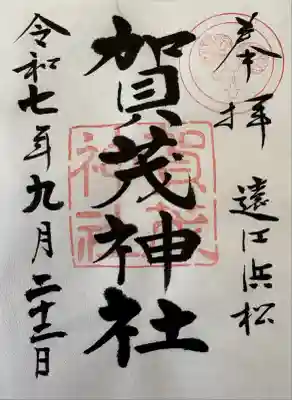 奉拝 遠江浜松
賀茂神社
賀茂神社
令和七年九月二十二日